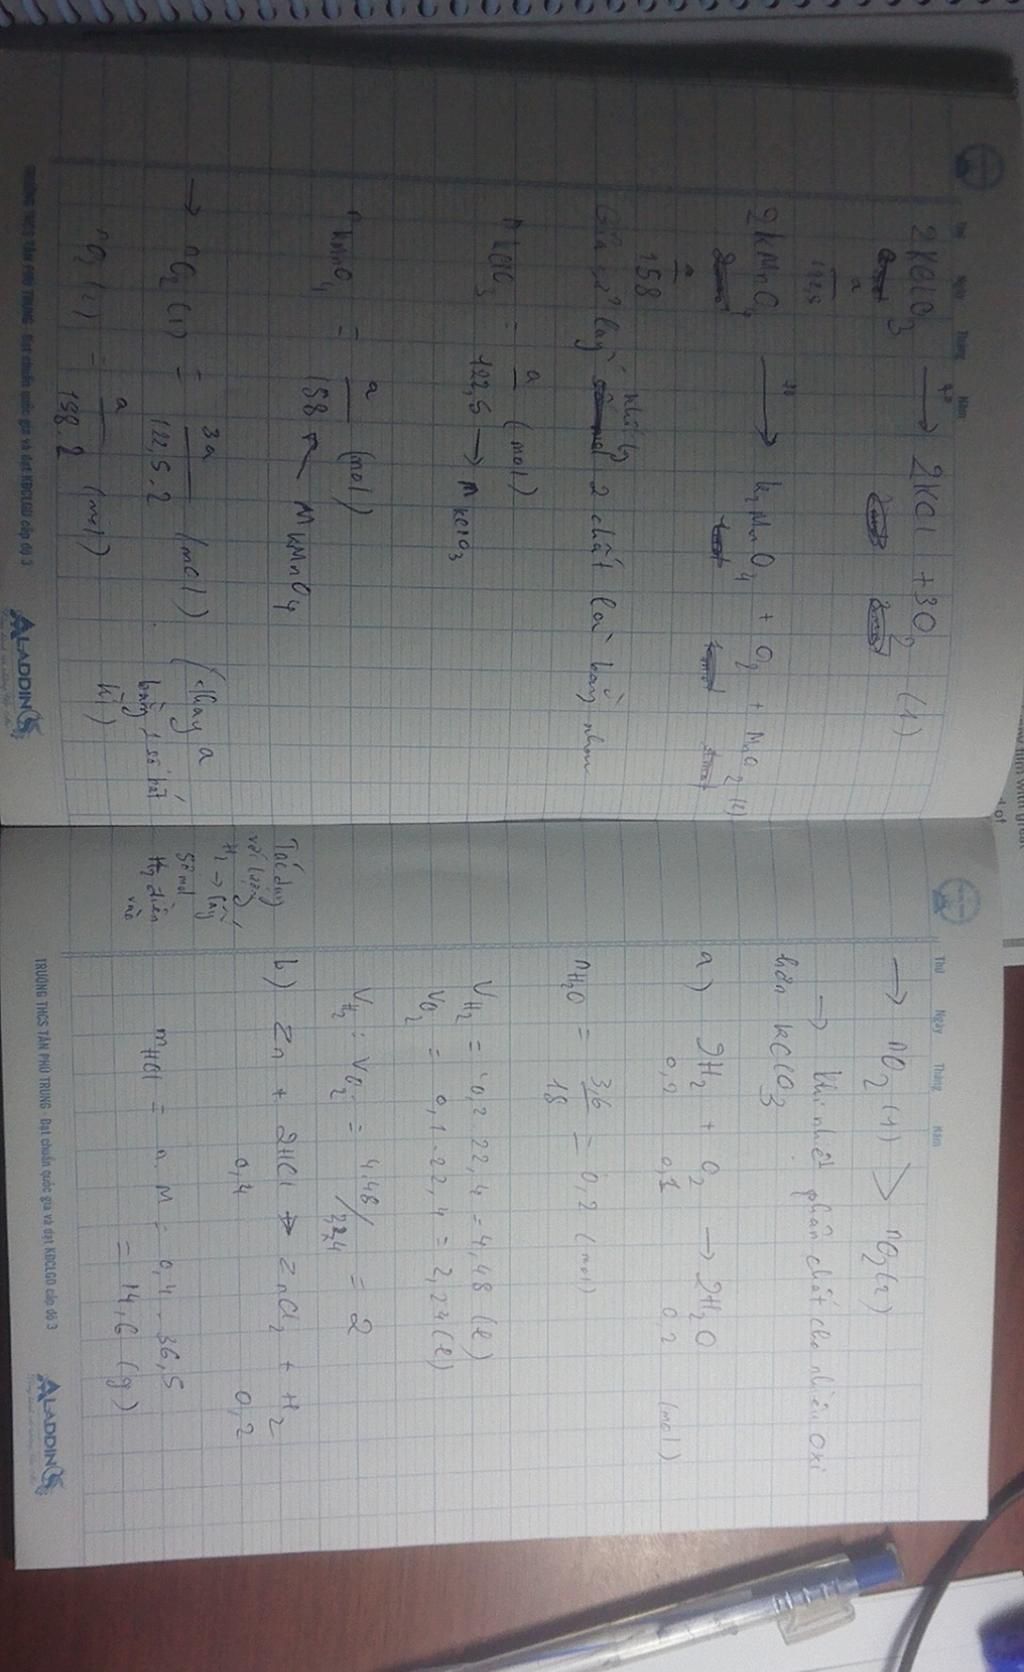 Thứ Ngày Tháng Năm
2KClO3 →t° 2KCl + 3O2 (1)
a
122,5
2KMnO4 →t° K2MnO4 + O2 + MnO2 (2)
a
158
khối lg
Giả sử lấy 2 chất lại bằng nhau
nKClO3 = a/122,5 (mol)
→ MKClO3
nKMnO4 = a/158 (mol)
MKMnO4
→ nO2 (1) = 3a/122,5.2 (mol)
nO2 (2) = a/158.2 (mol)
(thay a
bằng 1 số bất
kì)
TRƯỜNG THCS TÂN PHÚ TRUNG - Đạt chuẩn quốc gia và đạt KĐCLGD cấp độ 3
ALADDIN
Thứ Ngày Tháng Năm
→ nO2 (1) > nO2 (2)
→ Khi nhiệt phân chất cho nhiều oxi
hơn KClO3
a) 2H2 + O2 → 2H2O
0,2 0,1 0,2 (mol)
nH2O = 3,6/18 = 0,2 (mol)
VH2 = 0,2 22,4 = 4,48 (l)
VO2 = 0,1 . 22,4 = 2,24 (l)
VH2 : VO2 = 4,48/2,24 = 2
Tác dụng
với lượng
H2 → lấy
số mol
H2 điền
vào
b) Zn + 2HCl → ZnCl2 + H2
0,4 0,2
mHCl = n . M = 0,4 . 36,5
= 14,6 (g)
TRƯỜNG THCS TÂN PHÚ TRUNG - Đạt chuẩn quốc gia và đạt KĐCLGD cấp độ 3
ALADDIN